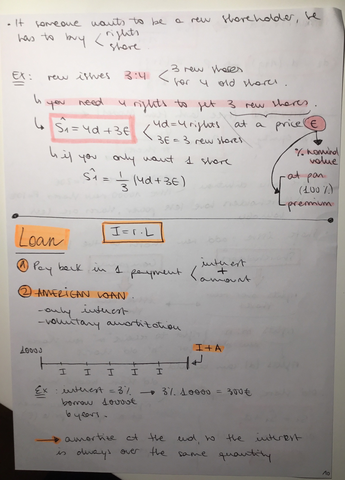 • If someone wants to be a new shareholder, he
has to buy < rights
share
Ex: new issues 3:4 < 3 new shares
for 4 old shares.
↳ you need 4 rights to get 3 new shares.
↳ Ŝ1 = 4d + 3E < 4d = 4 rights at a price E
3E = 3 new shares
% nominal
value
↳ if you only want 1 share
at par.
(100%)
Ŝ1 = 1/3 (4d + 3E)
premium
Loan I = r · L
1 Pay back in 1 payment < interest
+
amount
2 AMERICAN LOAN.
- only interest
- voluntary amortization
10000 I + A
I I I I I
Ex: interest = 3% → 3% 10000 = 300€
borrow 10000€
6 years.
→ amortize at the end, so the interest
is always over the same quantity